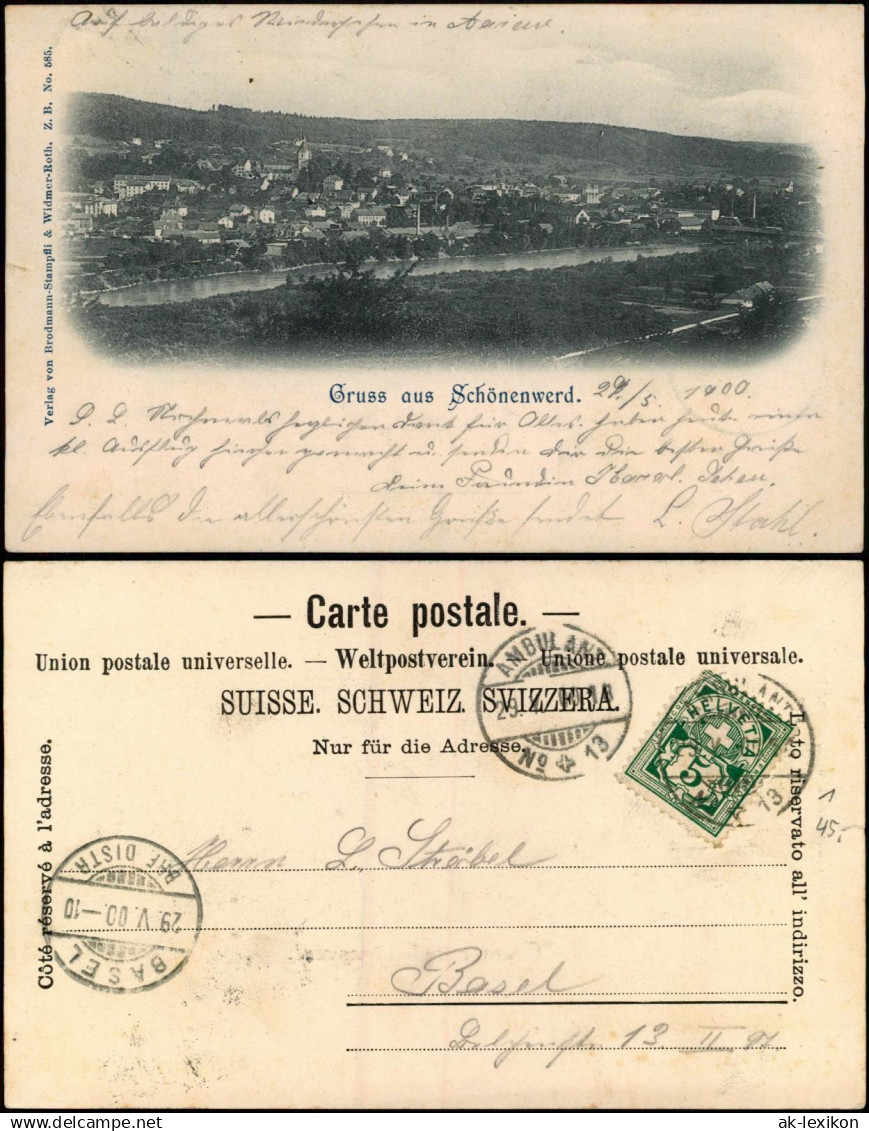 Auf baldiges Wiedersehen in
Verlag von Brodmann-Stampfli & Widmer-Roth. Z. B. No. 585.
Gruss aus Schönenwerd. 29/5 1900.
Nochmals herzlichen Dank für Alles. haben heute einen
kl. Ausflug hieher gemacht u. senden dir die besten Grüße
deine Freundin
Ebenfalls die allerschönsten Grüße sendet L. Stahl.
— Carte postale. —
Union postale universelle. — Weltpostverein. Unione postale universale.
SUISSE. SCHWEIZ. SVIZZERA.
Nur für die Adresse.
AMBULANT
29.
No 13
HELVETIA
5
13
Côté réservé à l'adresse.
Lato riservato all' indirizzo.
1
45,-
BRF. DISTR.
29. V. 00.–10
BASEL
Herrn L. Ströbel
Basel
13 II
ak-lexikon